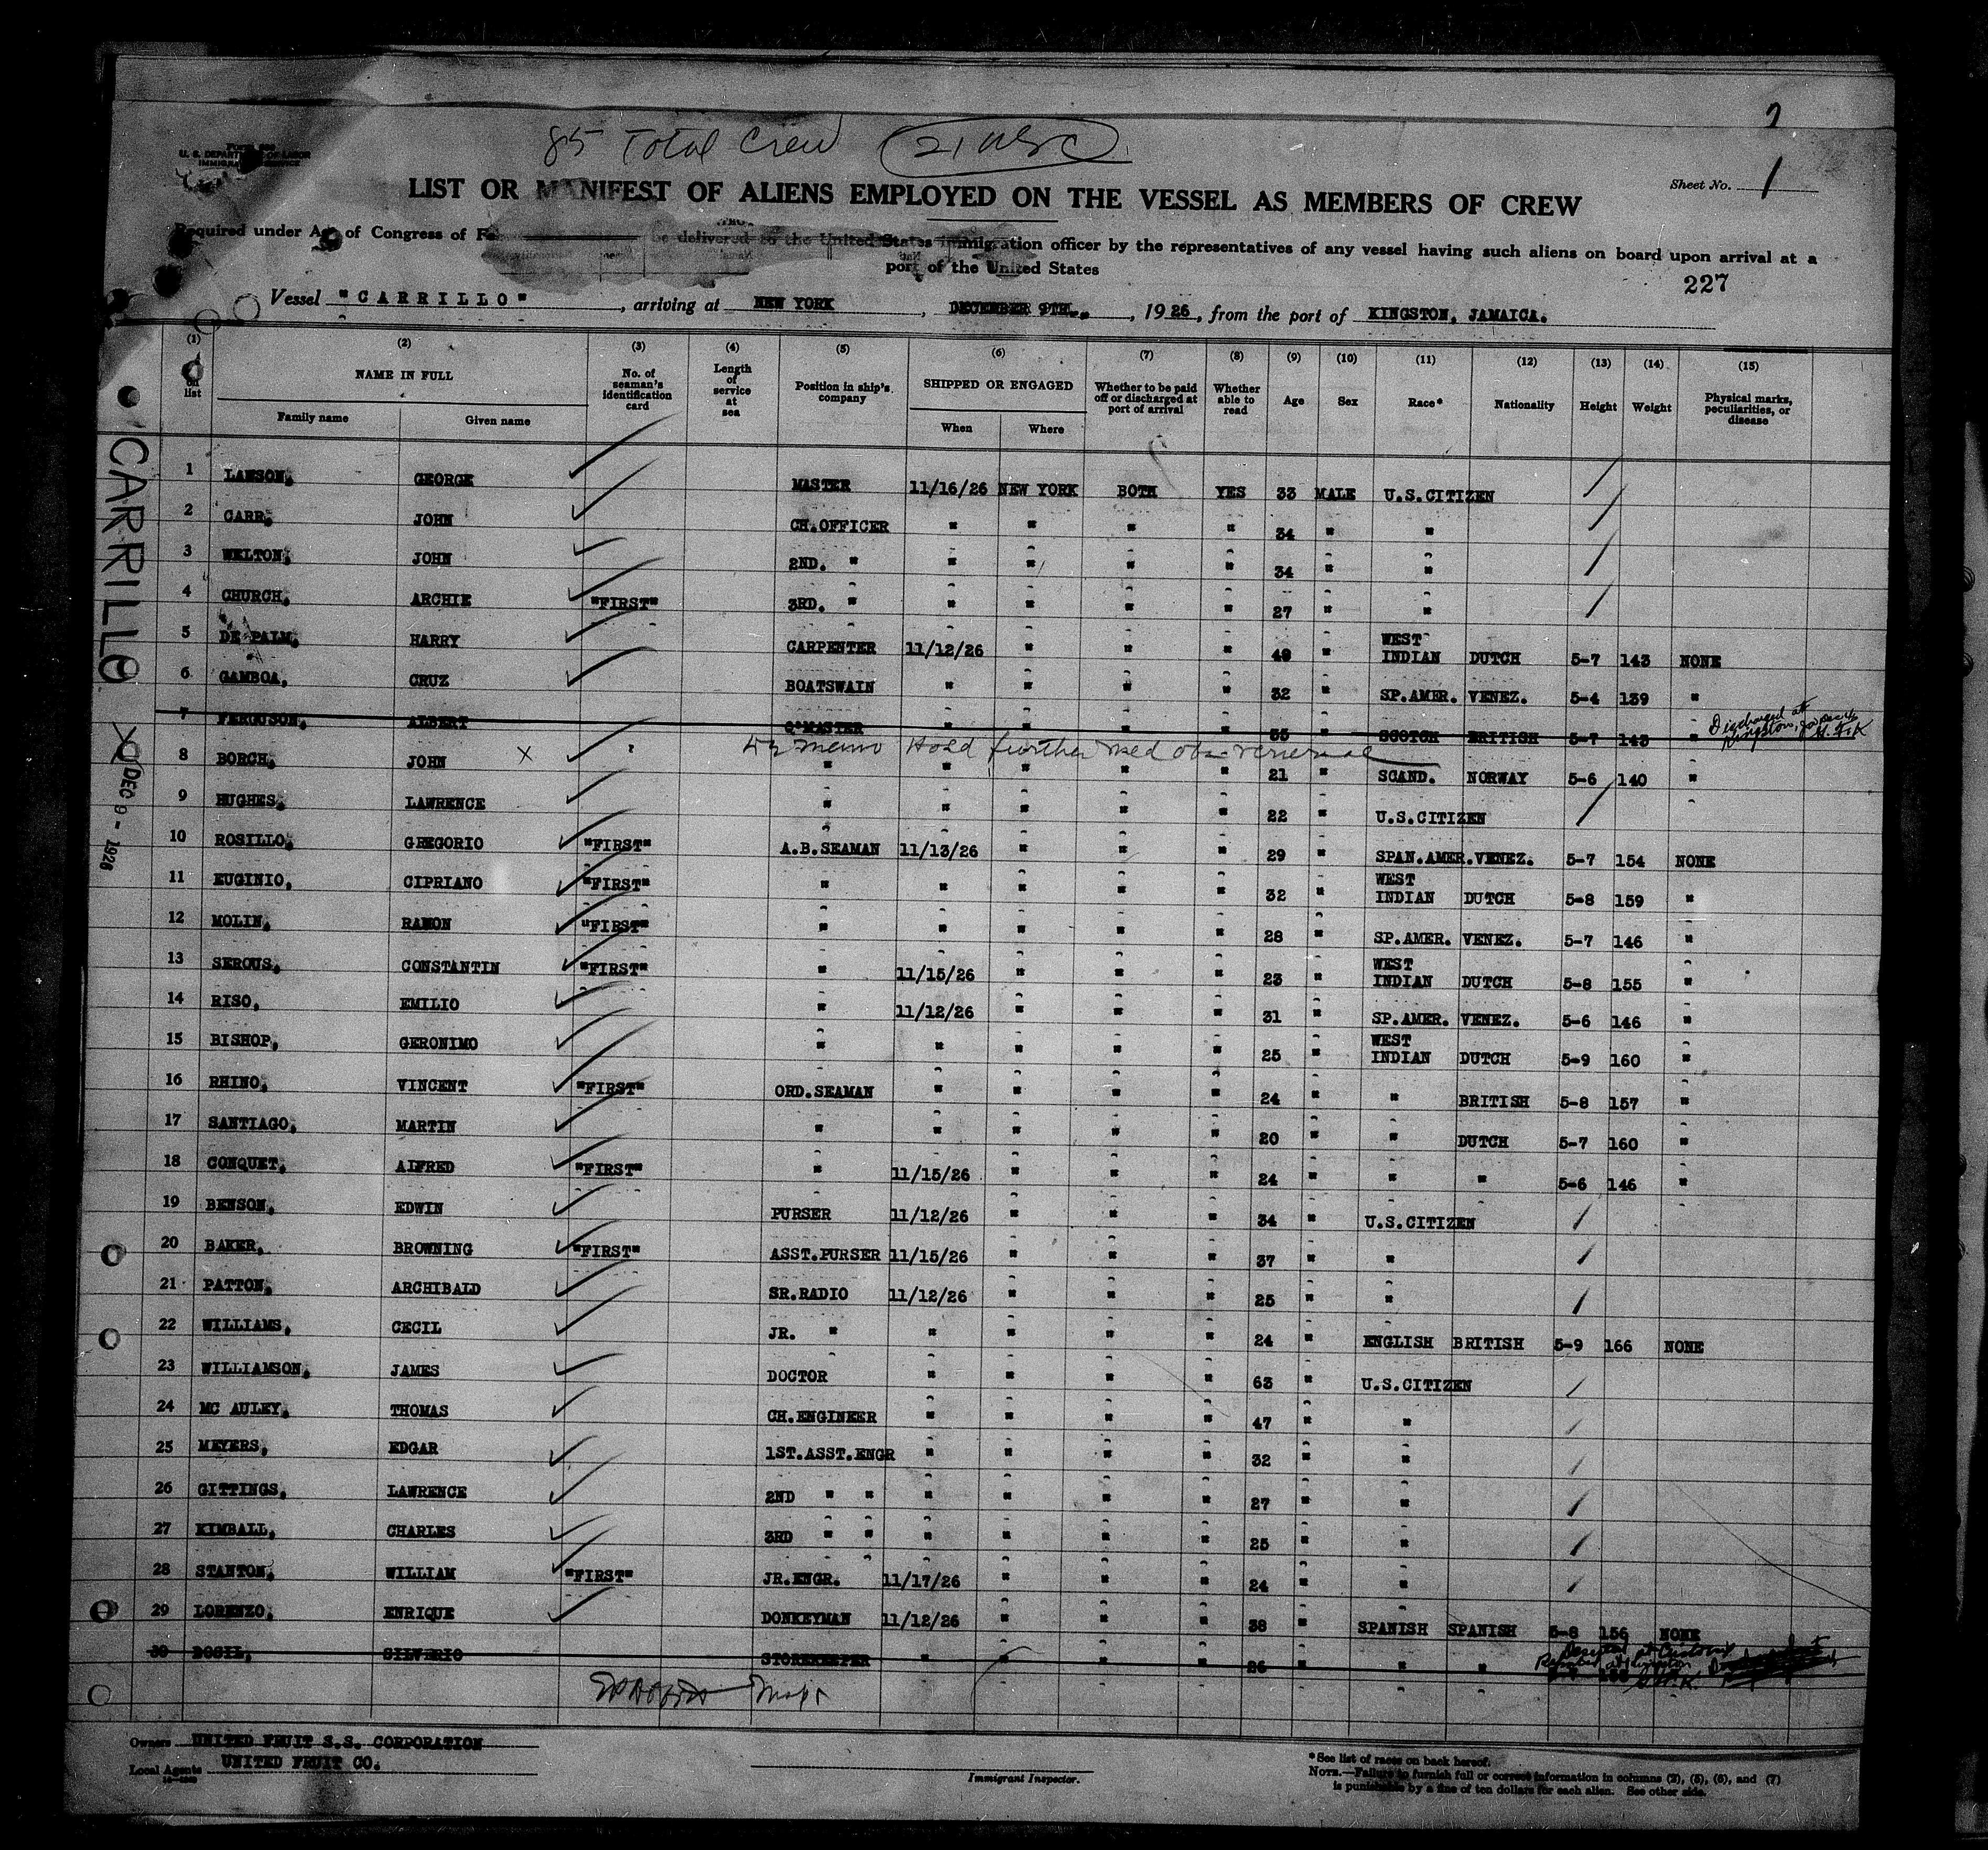 2
85 Total Crew 21 USC
Form 689
U. S. DEPARTMENT OF LABOR
IMMIGRATION SERVICE
Sheet No. 1
LIST OR MANIFEST OF ALIENS EMPLOYED ON THE VESSEL AS MEMBERS OF CREW
Required under Act of Congress of be delivered to the United States immigration officer by the representatives of any vessel having such aliens on board upon arrival at a
port of the United States
227
Vessel "CARRILLO", arriving at NEW YORK, DECEMBER 9TH., 1926, from the port of KINGSTON, JAMAICA.
(1) (2) (3) (4) (5) (6) (7) (8) (9) (10) (11) (12) (13) (14) (15)
on list NAME IN FULL No. of seaman's identification card Length of service at sea Position in ship's company SHIPPED OR ENGAGED Whether to be paid off or discharged at port of arrival Whether able to read Age Sex Race* Nationality Height Weight Physical marks, peculiarities, or disease
Family name Given name When Where
1 LAWSON, GEORGE MASTER 11/16/26 NEW YORK BOTH YES 33 MALE U.S.CITIZEN
2 CARR, JOHN CH.OFFICER " " " " 34 " "
3 WELTON, JOHN 2ND. " " " " " 34 " "
4 CHURCH, ARCHIE "FIRST" 3RD. " " " " " 27 " "
5 DE PALM, HARRY CARPENTER 11/12/26 " " " " WEST INDIAN DUTCH 5-7 143 NONE
6 GAMBOA, CRUZ BOATSWAIN " " " " 32 " SP.AMER. VENEZ. 5-4 139 "
7 FERGUSON, ALBERT Q'MASTER " " " " 35 " SCOTCH BRITISH 5-7 143 " Discharged at Kingston,
Hold further med obs
8 BORCH, JOHN X " " " " " 21 " SCAND. NORWAY 5-6 140 "
9 HUGHES, LAWRENCE " " " " " 22 " U.S.CITIZEN
10 ROSILLO, GREGORIO "FIRST" A.B.SEAMAN 11/13/26 " " " 29 " SPAN.AMER. VENEZ. 5-7 154 NONE
11 EUGINIO, CIPRIANO "FIRST" " " " " " 32 " WEST INDIAN DUTCH 5-8 159 "
12 MOLIN, RAMON "FIRST" " " " " " 28 " SP.AMER. VENEZ. 5-7 146 "
13 SEROUS, CONSTANTIN "FIRST" " 11/15/26 " " " 23 " WEST INDIAN DUTCH 5-8 155 "
14 RISO, EMILIO " 11/12/26 " " " 31 " SP.AMER. VENEZ. 5-6 146 "
15 BISHOP, GERONIMO " " " " " 25 " WEST INDIAN DUTCH 5-9 160 "
16 RHINO, VINCENT "FIRST" ORD.SEAMAN " " " " 24 " " BRITISH 5-8 157 "
17 SANTIAGO, MARTIN " " " " " 20 " " DUTCH 5-7 160 "
18 CONQUET, ALFRED "FIRST" " 11/15/26 " " " 24 " " " 5-6 146 "
19 BENSON, EDWIN PURSER 11/12/26 " " " 34 " U.S.CITIZEN
20 BAKER, BROWNING "FIRST" ASST.PURSER 11/15/26 " " " 37 " "
21 PATTON, ARCHIBALD SR.RADIO 11/12/26 " " " 25 " "
22 WILLIAMS, CECIL JR. " " " " " 24 " ENGLISH BRITISH 5-9 166 NONE
23 WILLIAMSON, JAMES DOCTOR " " " " 63 " U.S.CITIZEN
24 MC AULEY, THOMAS CH.ENGINEER " " " " 47 " "
25 MEYERS, EDGAR 1ST.ASST.ENGR " " " " 32 " "
26 GITTINGS, LAWRENCE 2ND " " " " " " 27 " "
27 KIMBALL, CHARLES 3RD " " " " " " 25 " "
28 STANTON, WILLIAM "FIRST" JR.ENGR. 11/17/26 " " " 24 " "
29 LORENZO, ENRIQUE DONKEYMAN 11/12/26 " " " 38 " SPANISH SPANISH 5-8 156 NONE
30 DOSIL, SILVERIO STOREKEEPER " " " " 26 " " "
Owners UNITED FRUIT S.S. CORPORATION
Local Agents UNITED FRUIT CO.
Immigrant Inspector.
*See list of races on back hereof.
NOTE.—Failure to furnish full or correct information in columns (2), (5), (6), and (7)
is punishable by a fine of ten dollars for each alien. See other side.
CARRILLO
DEC 9 - 1926